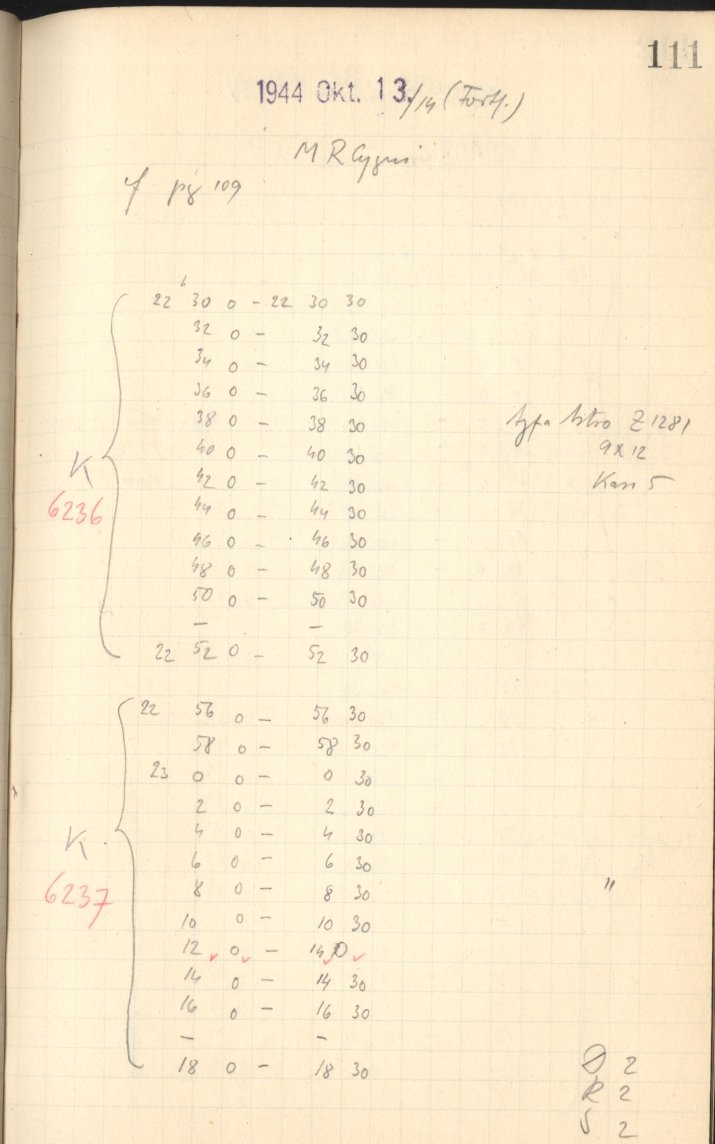 111
1944 Okt. 13./14 (Forts.)
MR Cygni
cf pg 109
22 h 30 0 - 22 30 30
32 0 - 32 30
34 0 - 34 30
36 0 - 36 30
38 0 - 38 30
Agfa Astro Z 1281
40 0 - 40 30
9x12
K
42 0 - 42 30
Kass 5
6236
44 0 - 44 30
46 0 - 46 30
48 0 - 48 30
50 0 - 50 30
— —
22 52 0 - 52 30
22 56 0 - 56 30
58 0 - 58 30
23 0 0 - 0 30
2 0 - 2 30
4 0 - 4 30
K
6 0 - 6 30
6237
8 0 - 8 30 "
10 0 - 10 30
12 0 - 14 0
14 0 - 14 30
16 0 - 16 30
— —
18 0 - 18 30
2
R 2
S 2